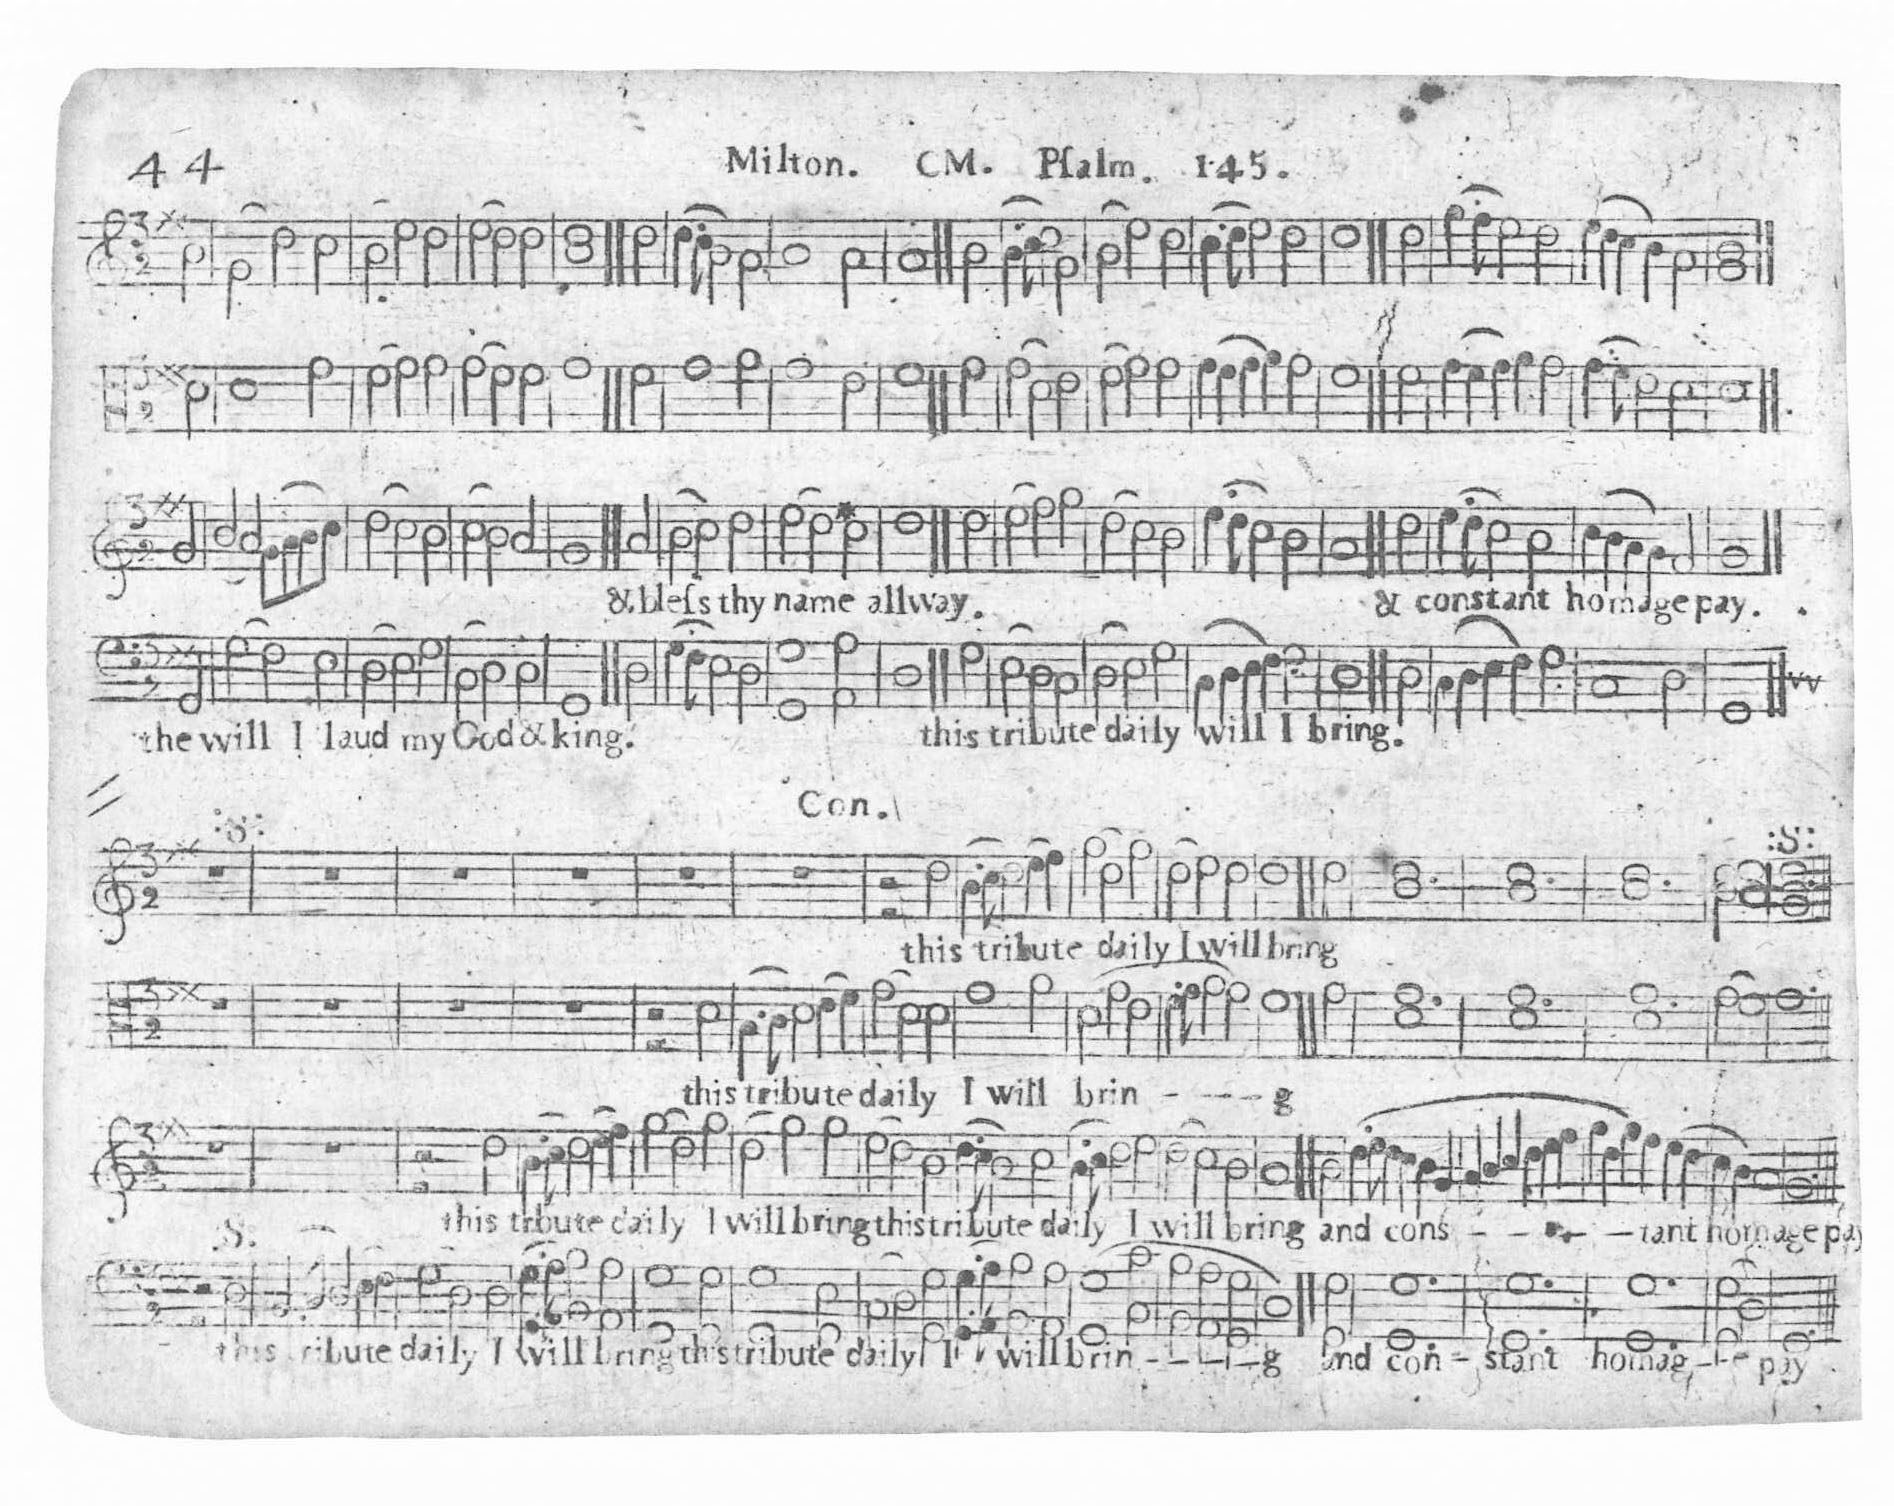 44
Milton. CM. Pſalm. 145.
& bleſs thy name allway. & constant homage pay.
the will I laud my God & king. this tribute daily will I bring.
Con.
:S:
:S:
this tribute daily I will bring
this tribute daily I will brin - - - - g
this trbute daily I will bring this tribute daily I will bring and cons - - - - tant homage pay
:S:
this tribute daily I will bring this tribute daily I will brin - - - - g and con - stant homag - - e pay